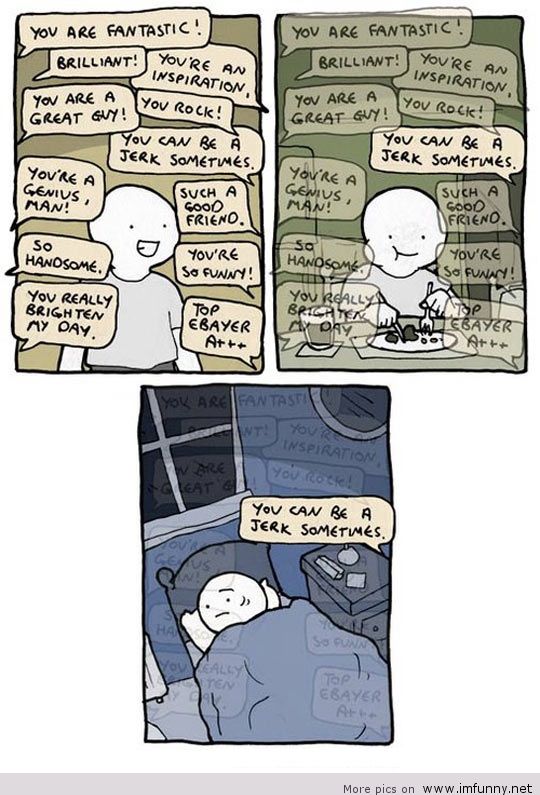 YOU ARE FANTASTIC!
BRILLIANT!
YOU'RE AN
INSPIRATION.
YOU ARE A
GREAT GUY!
YOU ROCK!
YOU CAN BE A
JERK SOMETIMES.
YOU'RE A
GENIUS,
MAN!
SUCH A
GOOD
FRIEND.
SO
HANDSOME.
YOU'RE
SO FUNNY!
YOU REALLY
BRIGHTEN
MY DAY.
TOP
EBAYER
A+++
YOU ARE FANTASTIC!
BRILLIANT!
YOU'RE AN
INSPIRATION.
YOU ARE A
GREAT GUY!
YOU ROCK!
YOU CAN BE A
JERK SOMETIMES.
YOU'RE A
GENIUS,
MAN!
SUCH A
GOOD
FRIEND.
SO
HANDSOME.
YOU'RE
SO FUNNY!
YOU REALLY
BRIGHTEN
MY DAY
TOP
EBAYER
A+++
YOU ARE FANTASTIC!
BRILLIANT!
YOU'RE AN
INSPIRATION.
YOU ARE
GREAT GUY!
YOU ROCK!
YOU CAN BE A
JERK SOMETIMES.
YOU'RE A
GENIUS
MAN!
SO
HANDSOME.
YOU'RE
SO FUNNY
YOU REALLY
BRIGHTEN
MY DAY.
TOP
EBAYER
A+++
More pics on www.imfunny.net